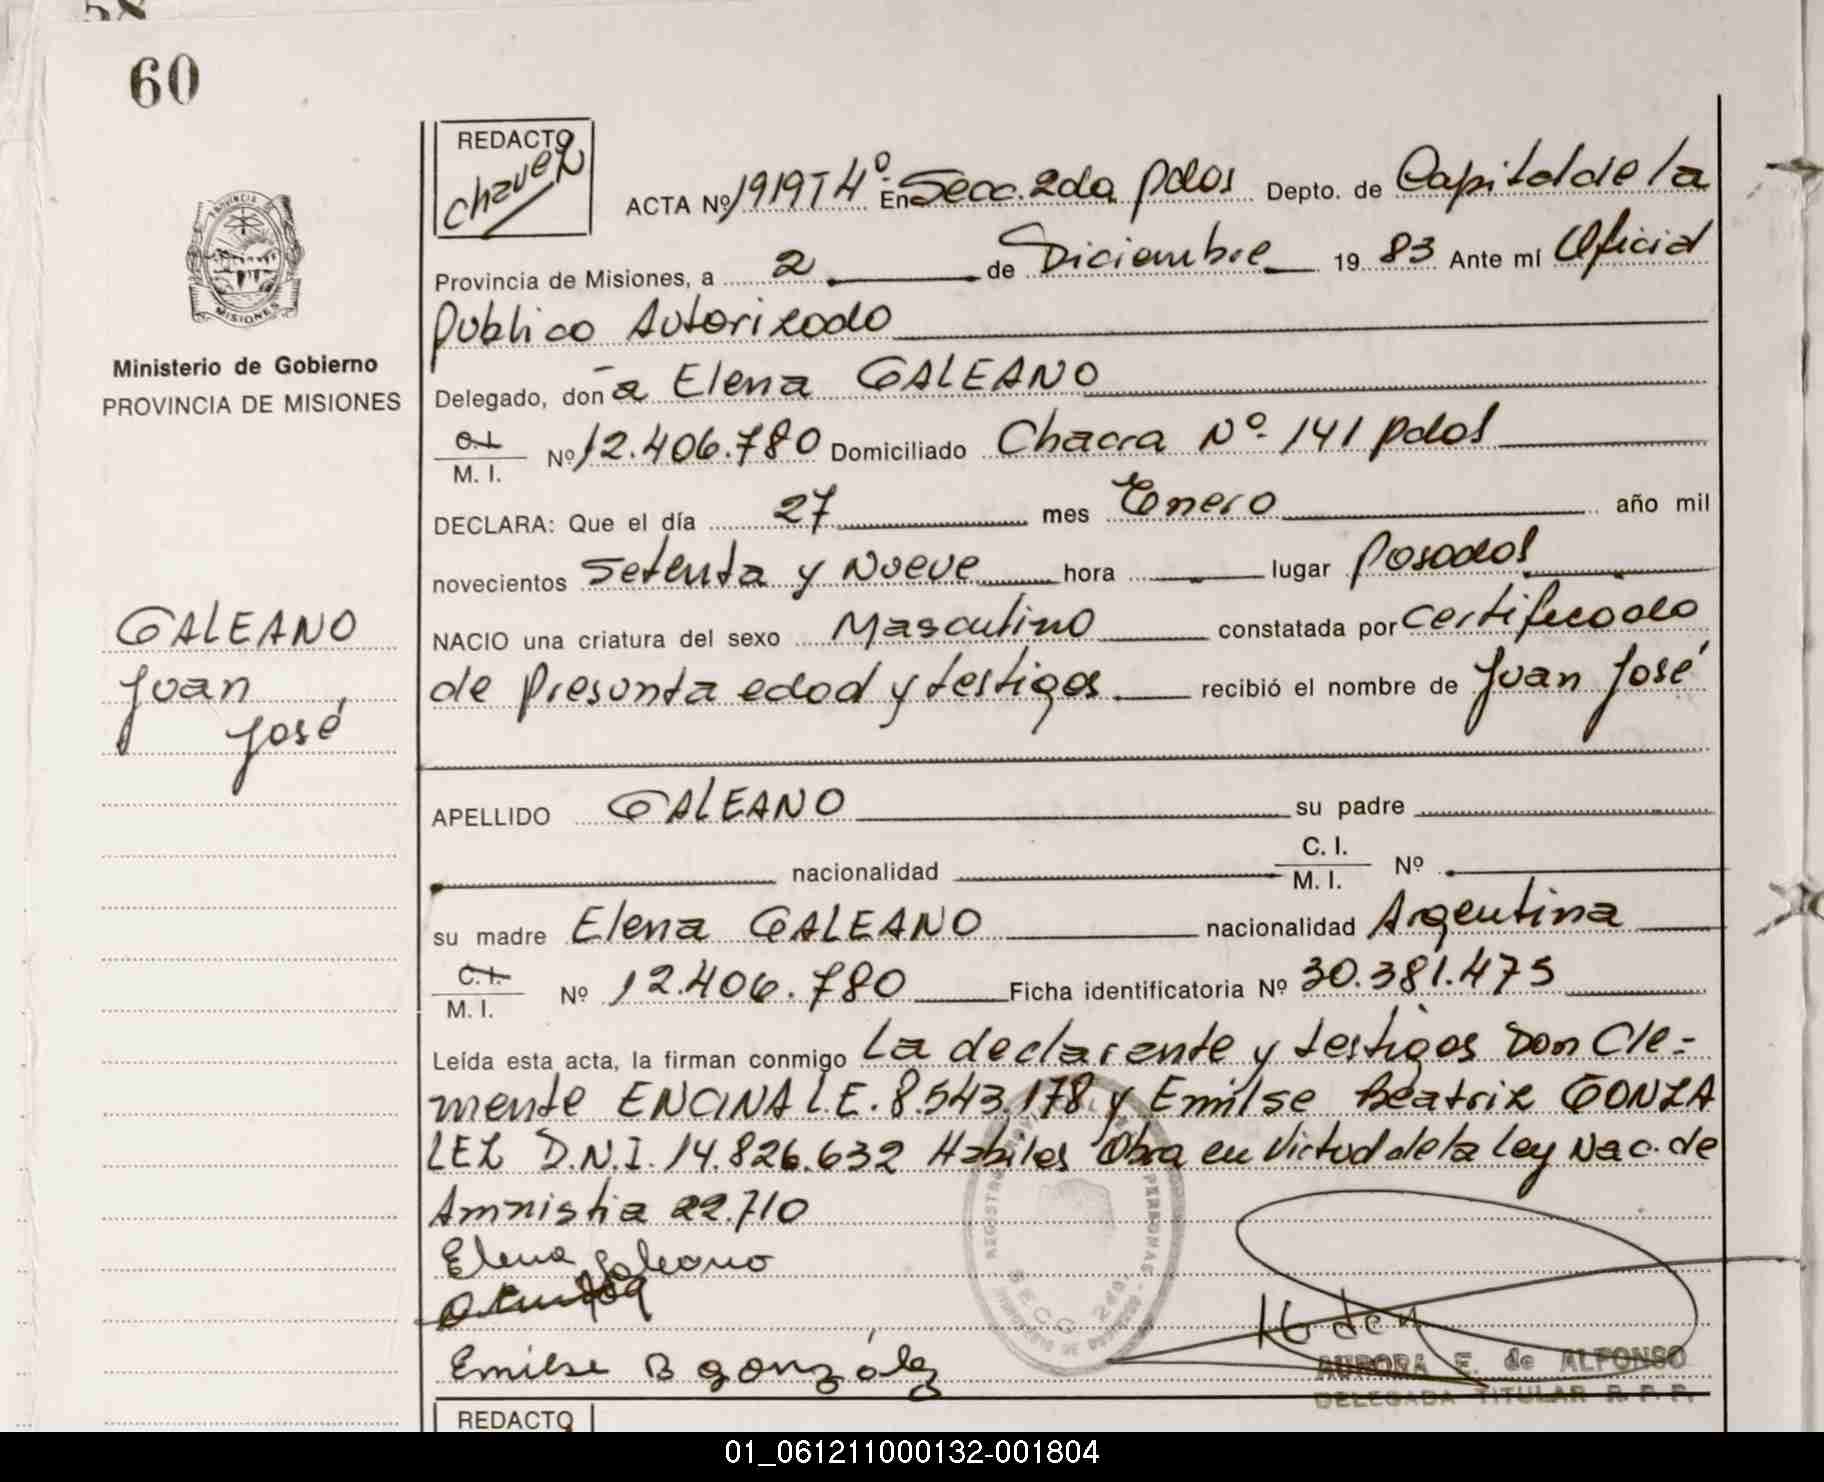 58
60
REDACTO
Chavez
ACTA Nº 1919 T 4º En Secc. 2da pdas Depto. de Capital de la
Provincia de Misiones, a 2 de Diciembre 19 83 Ante mí Oficial
Publico Autorizado
PROVINCIA
MISIONES
Ministerio de Gobierno
PROVINCIA DE MISIONES
Delegado, don a Elena GALEANO
C.I. M. I. Nº 12.406.780 Domiciliado Chacra Nº 141 pdas
DECLARA: Que el día 27 mes Enero año mil
novecientos Setenta y Nueve hora lugar Posadas
NACIO una criatura del sexo Masculino constatada por Certificado
de Presunta edad y testigos recibió el nombre de Juan José
GALEANO
Juan
José
APELLIDO GALEANO su padre
nacionalidad C. I. M. I. Nº
su madre Elena GALEANO nacionalidad Argentina
C.I. M. I. Nº 12.406.780 Ficha identificatoria Nº 30.381.475
Leída esta acta, la firman conmigo La declarante y testigos Don Cle-
mente ENCINA L.E. 8.543.178 y Emilse Beatriz GONZA
LEZ D.N.I. 14.826.632 Habiles Obra en Victud de la Ley Nac. de
Amnistia 22.710
Elena Galeano
Emilse B gonzález
SECC 2da
AURORA E. de ALFONSO
DELEGADA TITULAR R. P. P.
REDACTO
01_061211000132-001804